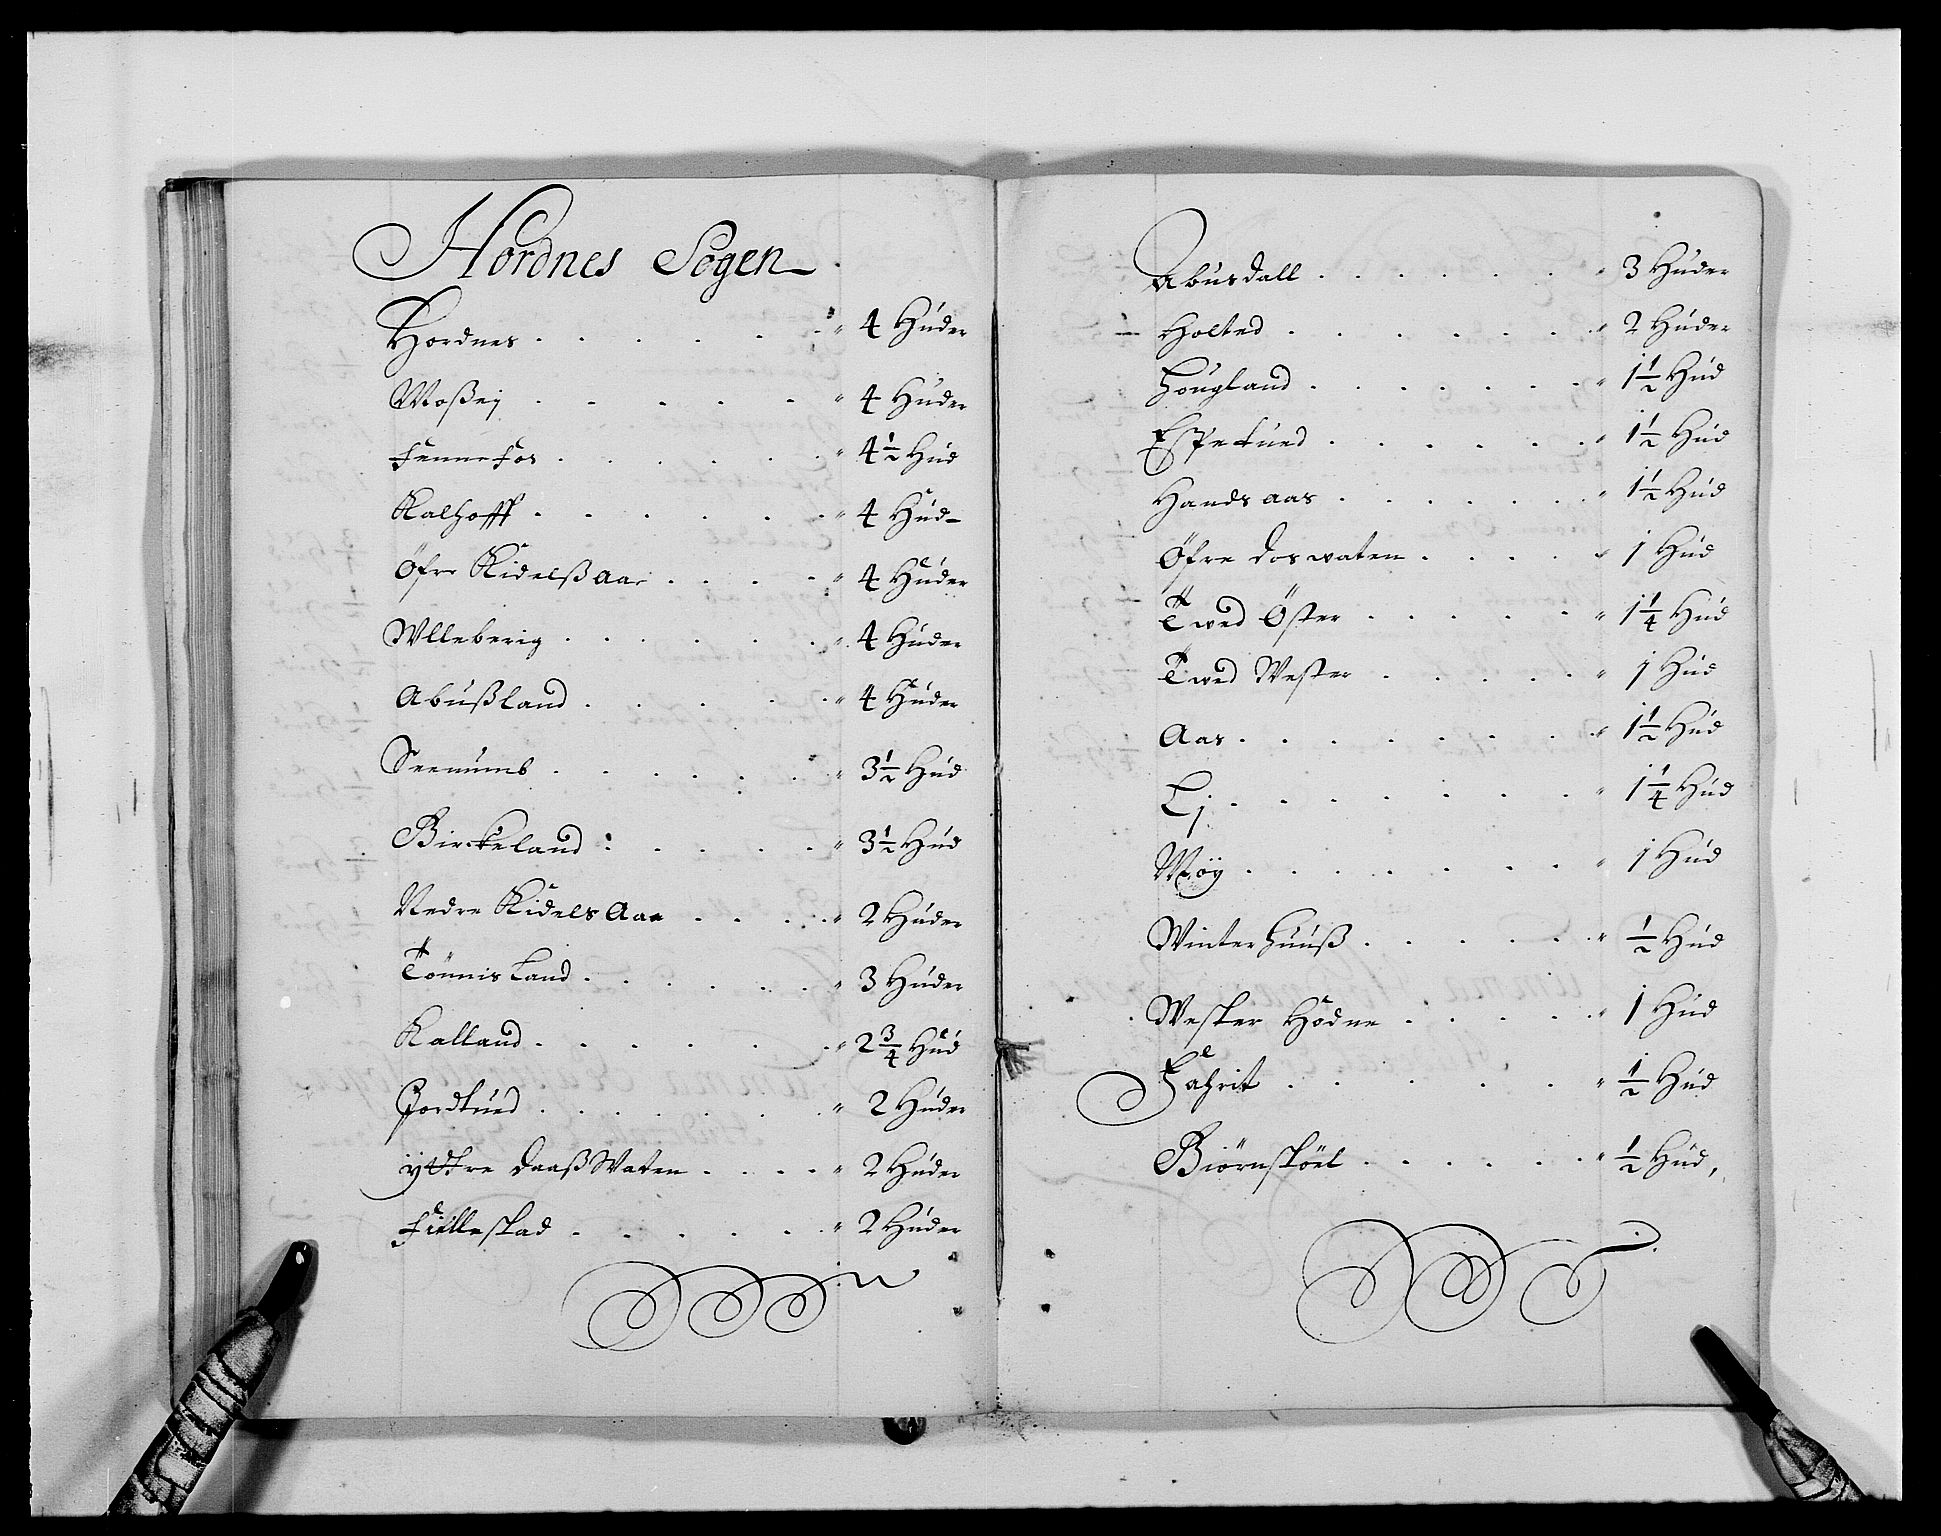 Hordnes Sogen
Hordnes . . . . . " 4 Huder
Moßej . . . . . " 4 Huder
Fennefos . . . . . " 4 1/2 Hud
Kalhoff . . . . . " 4 Hud
Öfre Kidelßaa . . . " 4 Huder
Wlleberig . . . . . " 4 Huder
Abußland . . . . . " 4 Huder
Seenumb . . . . . " 3 1/2 Hud
Birckeland . . . . " 3 1/2 Hud
Nedre Kidels Aaa . . . " 2 Huder
Tönnis Land . . . . . " 3 Huder
Kalland . . . . . " 2 3/4 Hud
Jordtued . . . . . " 2 Huder
ÿttre DaaßWaten . . . . " 2 Huder
Fiellestad . . . . . " 2 Huder
Abusdall . . . . . " 3 Huder
Holted . . . . . " 2 Huder
Hougland . . . . . " 1 1/2 Hud
Espetued . . . . . " 1 1/2 Hud
Handsaas . . . . . " 1 1/2 Hud
Öfre Doswaten . . . . " 1 Hud
Twed Öster . . . . . " 1 1/4 Hud
Twed Wester . . . . . " 1 Hud
Aas . . . . . " 1 1/2 Hud
Lj . . . . . " 1 1/4 Hud
Möÿ . . . . . " 1 Hud
Winterhuuß . . . . . " 1/2 Hud
Wester Hodne . . . . . " 1 Hud
Fahrit . . . . . " 1/2 Hud
Biörnstöel . . . . . " 1/2 Hud,